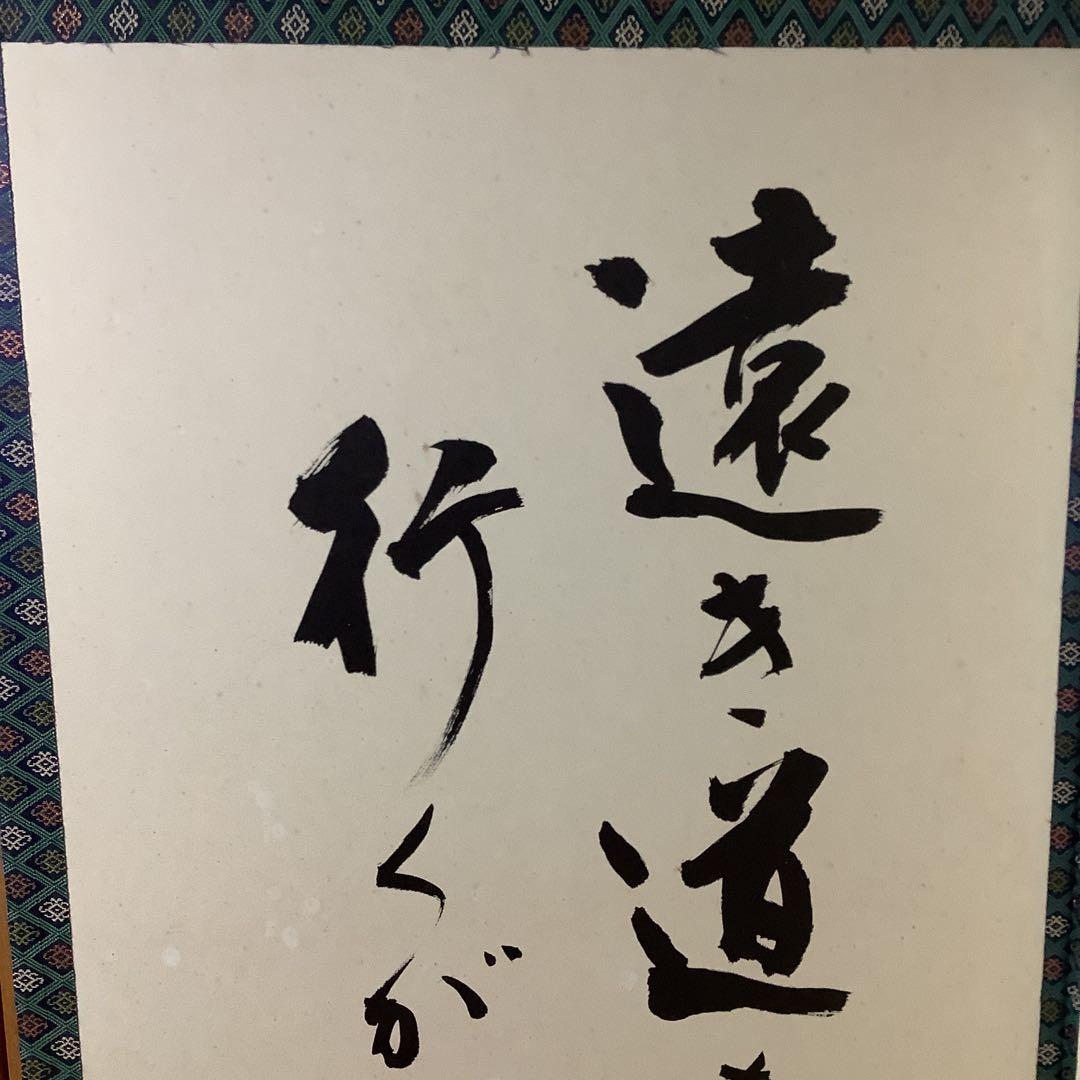 遠き道
行くが